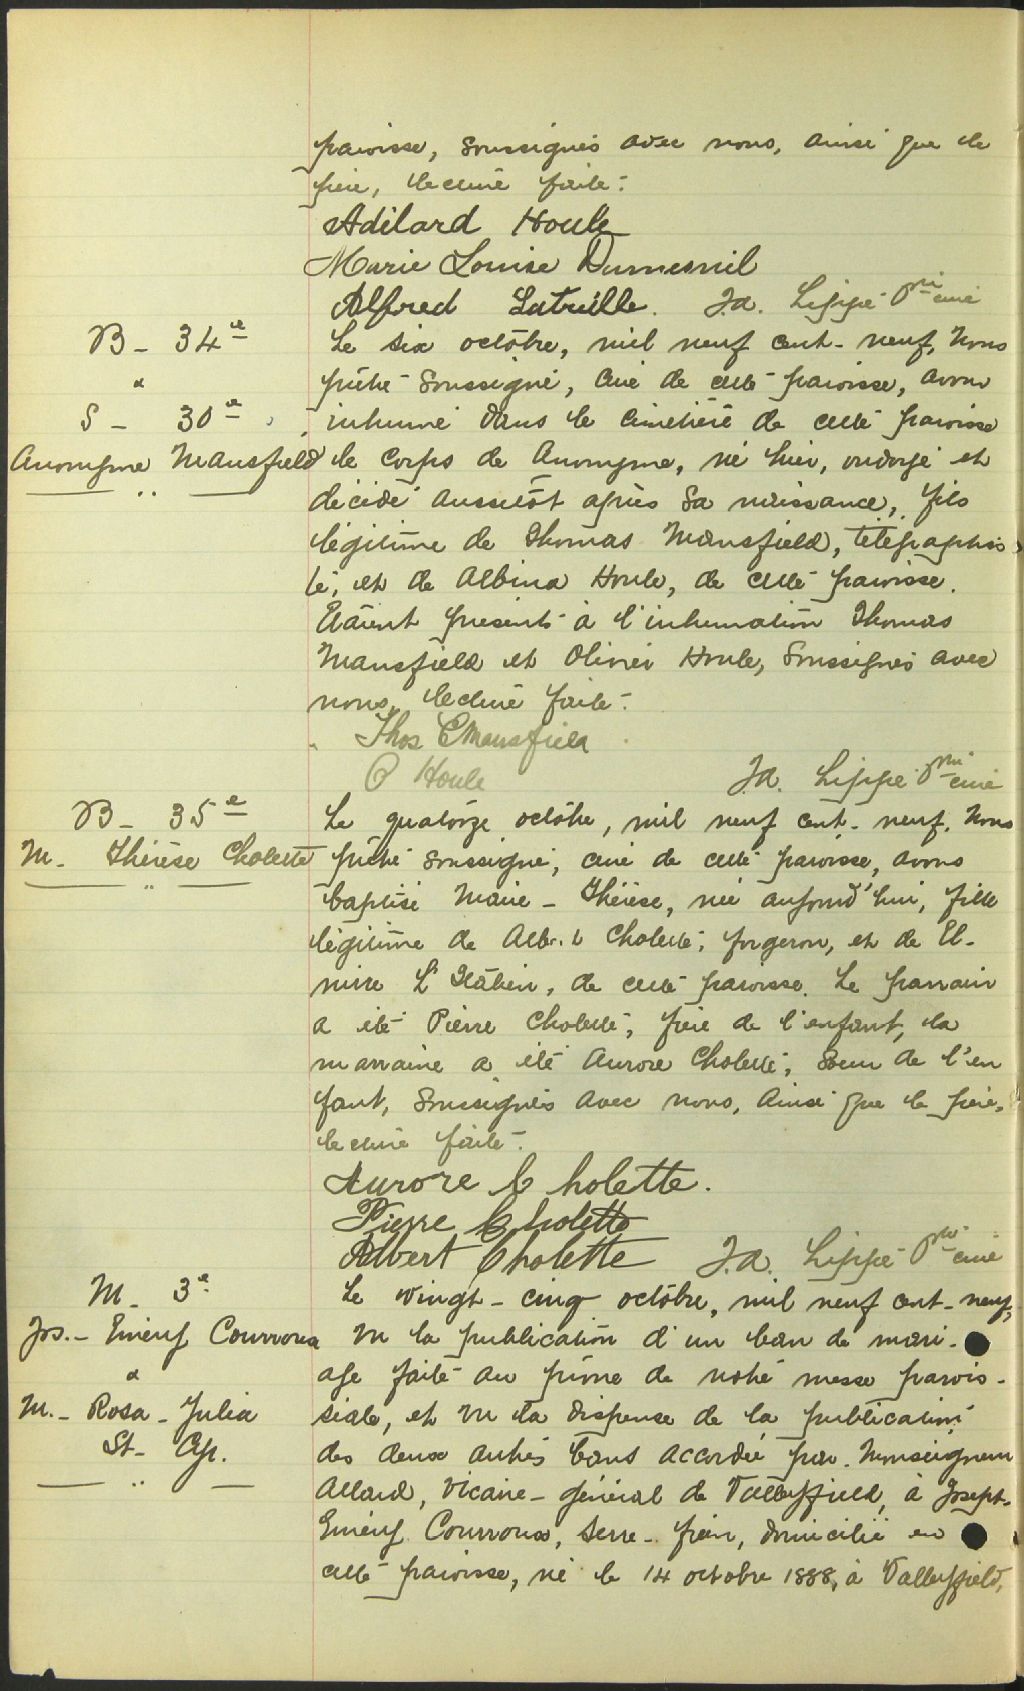 paroisse, soussignés avec nous, ainsi que le
père, lecture faite.
Adélard Houle
Marie Louise Dumesnil
Alfred Latreille. J.A. Lippé Ptre curé
B - 34e
&
S - 30e
Anonyme Mansfield
Le six octobre, mil neuf cent-neuf, Nous
prêtre soussigné, curé de cette paroisse, avons
inhumé dans le cimetière de cette paroisse
le corps de Anonyme, né hier, ondoyé et
décédé aussitôt après sa naissance, fils
légitime de Thomas Mansfield, télégraphis
te, et de Albina Houle, de cette paroisse.
Etaient présents à l'inhumation Thomas
Mansfield et Olivier Houle, soussignés avec
nous, lecture faite.
Thos C Mansfield
O Houle J.A. Lippé Ptre curé
B - 35e
M - Thérèse Cholette
Le quatorze octobre, mil neuf cent-neuf, Nous
prêtre soussigné, curé de cette paroisse, avons
baptisé Marie-Thérèse, née aujourd'hui, fille
légitime de Albert Cholette, forgeron, et de El-
mire L'Italien, de cette paroisse. Le parrain
a été Pierre Cholette, frère de l'enfant, la
marraine a été Aurore Cholette, soeur de l'en
fant, soussignés avec nous, ainsi que le père,
lecture faite.
Aurore Cholette.
Pierre Cholette
Albert Cholette J.A. Lippé Ptre curé
M - 3e
Jos.- Emery Courroux
&
M.- Rosa - Julia
St- Cyr.
Le vingt-cinq octobre, mil neuf cent-neuf,
vu la publication d'un ban de mari-
age faite au prône de notre messe parois-
siale, et vu la dispense de la publication
des deux autres bans accordée par Monseigneur
Allard, vicaire-général de Valleyfield, à Joseph-
Emery Courroux, serre-frein, domicilié en
cette paroisse, né le 14 octobre 1888, à Valleyfield,